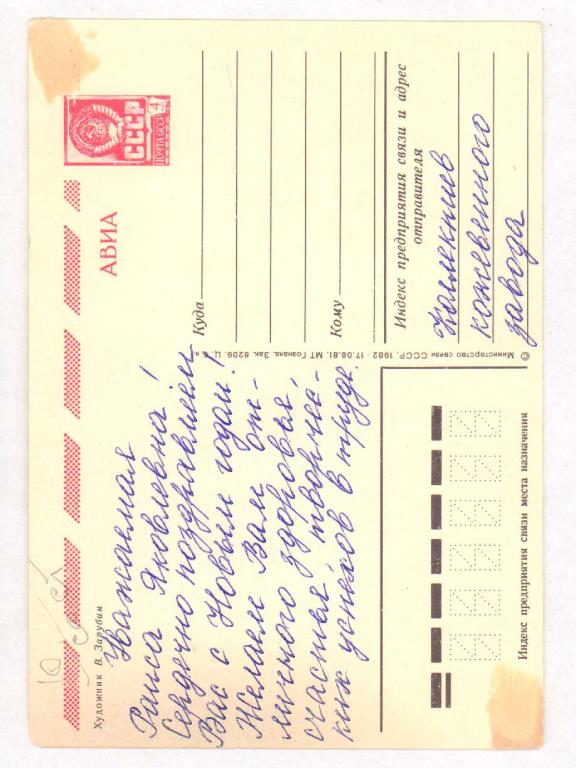 Художник В. Зарубин
АВИА
СССР
ПОЧТА СССР
4
Уважаемая
Раиса Яковлевна!
Сердечно поздравляем
Вас с Новым годом!
Желаем Вам от-
личного здоровья,
счастья, творчес-
ких успехов в труде.
Куда
Кому
Индекс предприятия связи и адрес
отправителя
Коллектив
кожевенного
завода
© Министерство связи СССР, 1982. 17.08.81. МТ Гознака. Зак. 6209. Ц. 5 к
Индекс предприятия связи места назначения